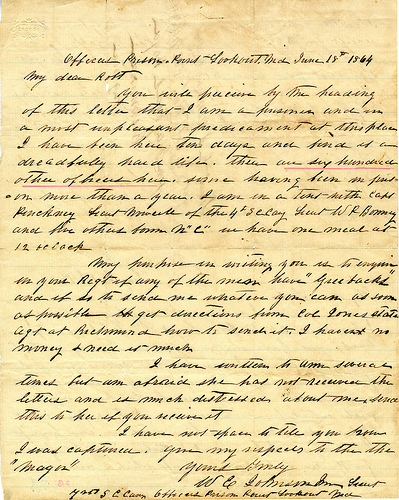 Officers Prison. Point Lookout. Md June 18th 1864
My dear Robt
You will perceive by the heading
of this letter that I am a prisoner and in
a most unpleasant predicament at this place
I have been here ten days and find is a
dreadfully hard life. there are six hundred
other officers here. some having been in pris-
on more than a year. I am in a tent with Capt
Pinckney Lieut of the 4th S C Cav Lieut W P
and five others from N "C" we have one meal at
12 o clock
My purpose in writing you is to enquire
in your Regt if any of the men have "Greebacks"
and if so to send me whatever you can as soon
as possible & get directions from Col Jones state
Agt at Richmond how to send it. I have no
money & need is much
I have written to several
times but am afraid she has not received the
letters and is much distressed about me. send
this to her if you receive it
I have not space to tell you how
I was captured. give my respects to the the
"Major"
Yours Truly
W E Johnson Lieut
S C Cav Officers Prison Point Lookout Md